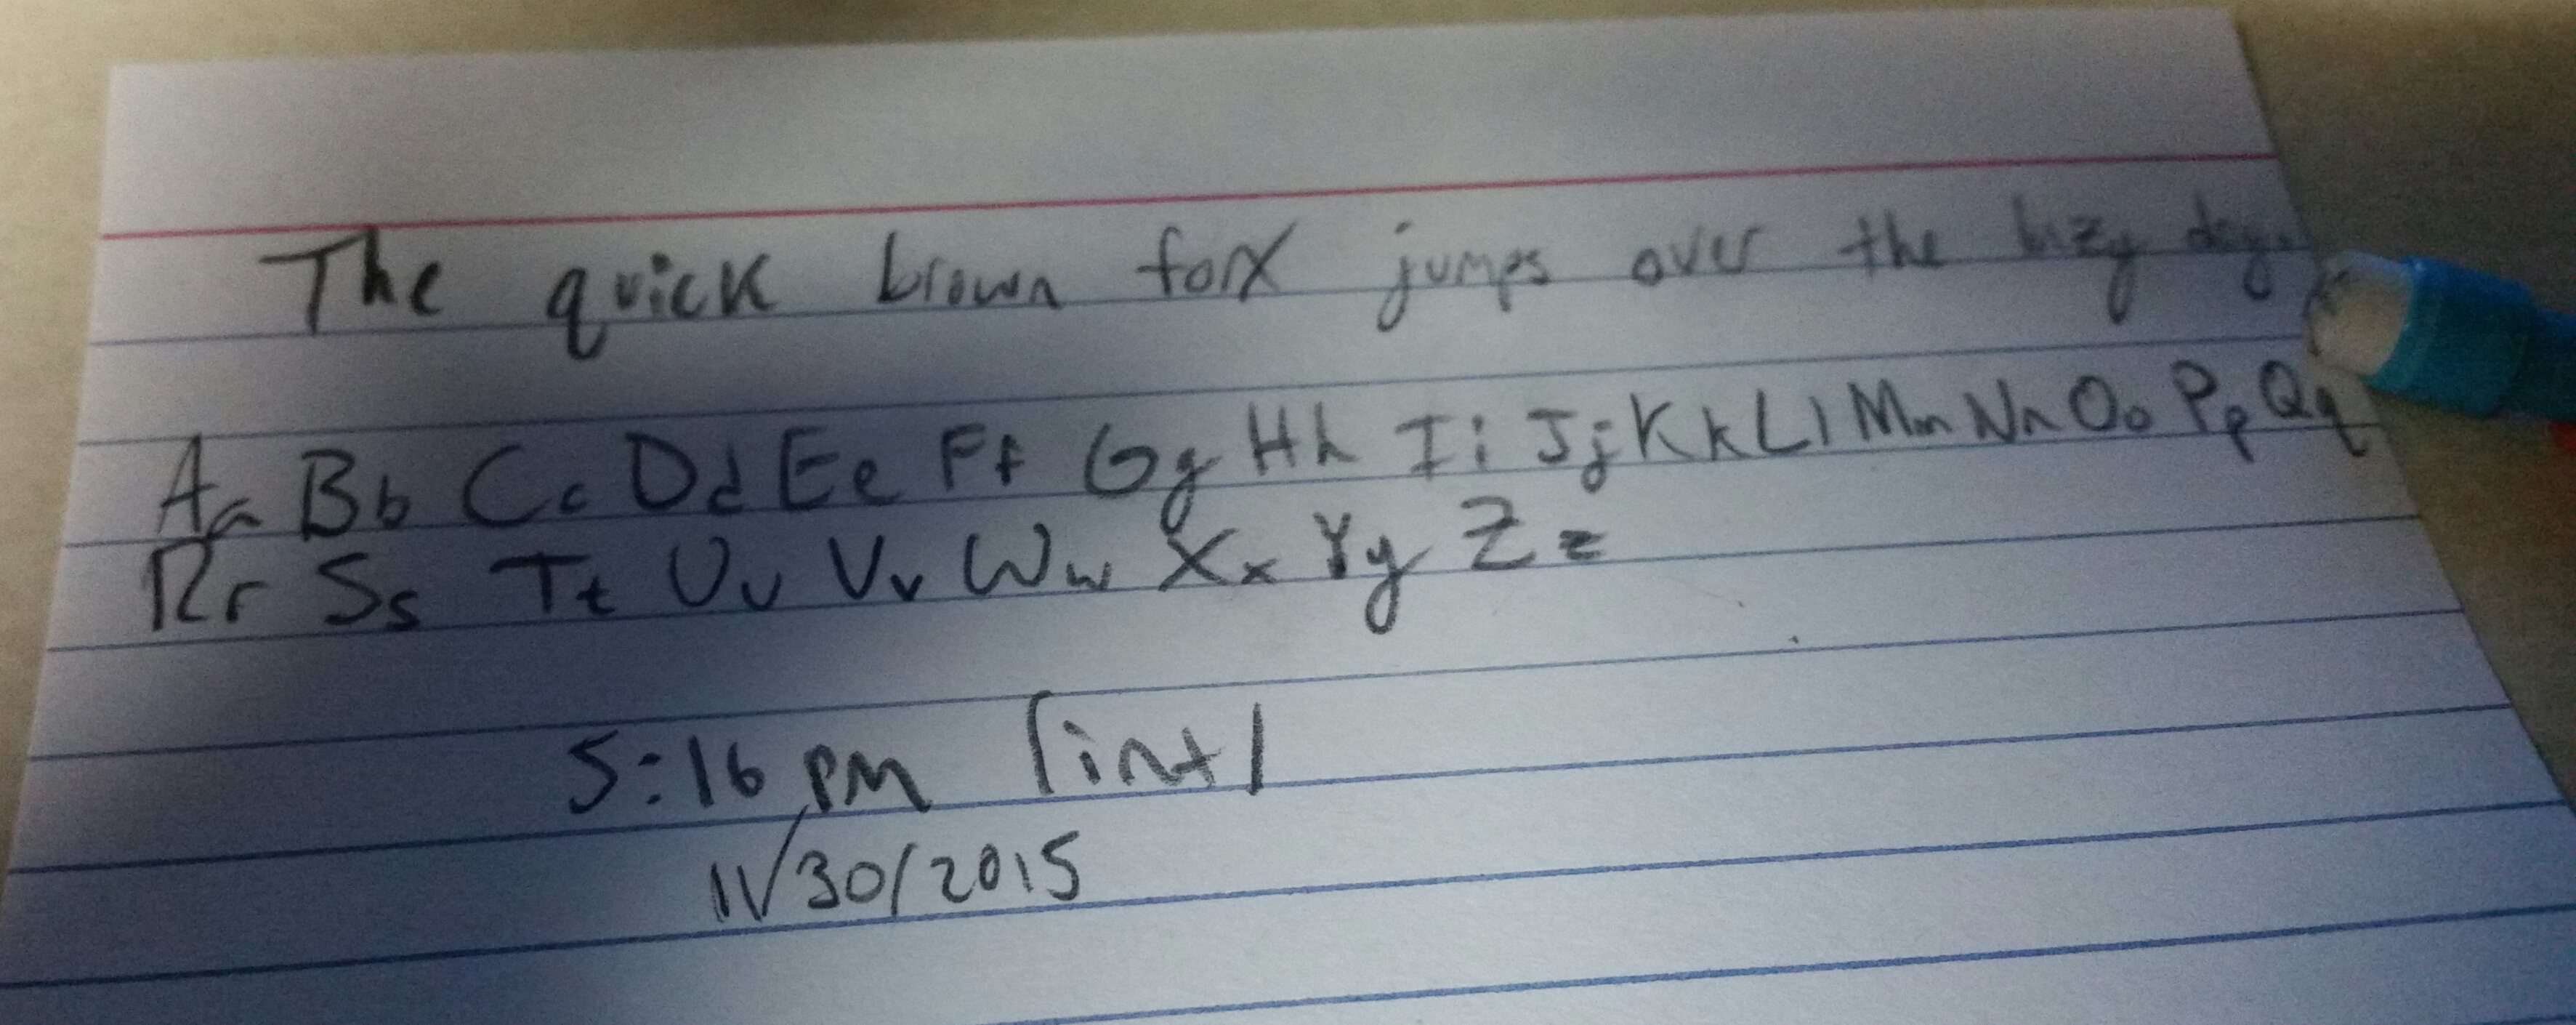 The quick brown fox jumps over the lazy dog.
Aa Bb Cc Dd Ee Ff Gg Hh Ii Jj Kk Ll Mm Nn Oo Pp Qq
Rr Ss Tt Uu Vv Ww Xx Yy Zz
5:16 PM
11/30/2015